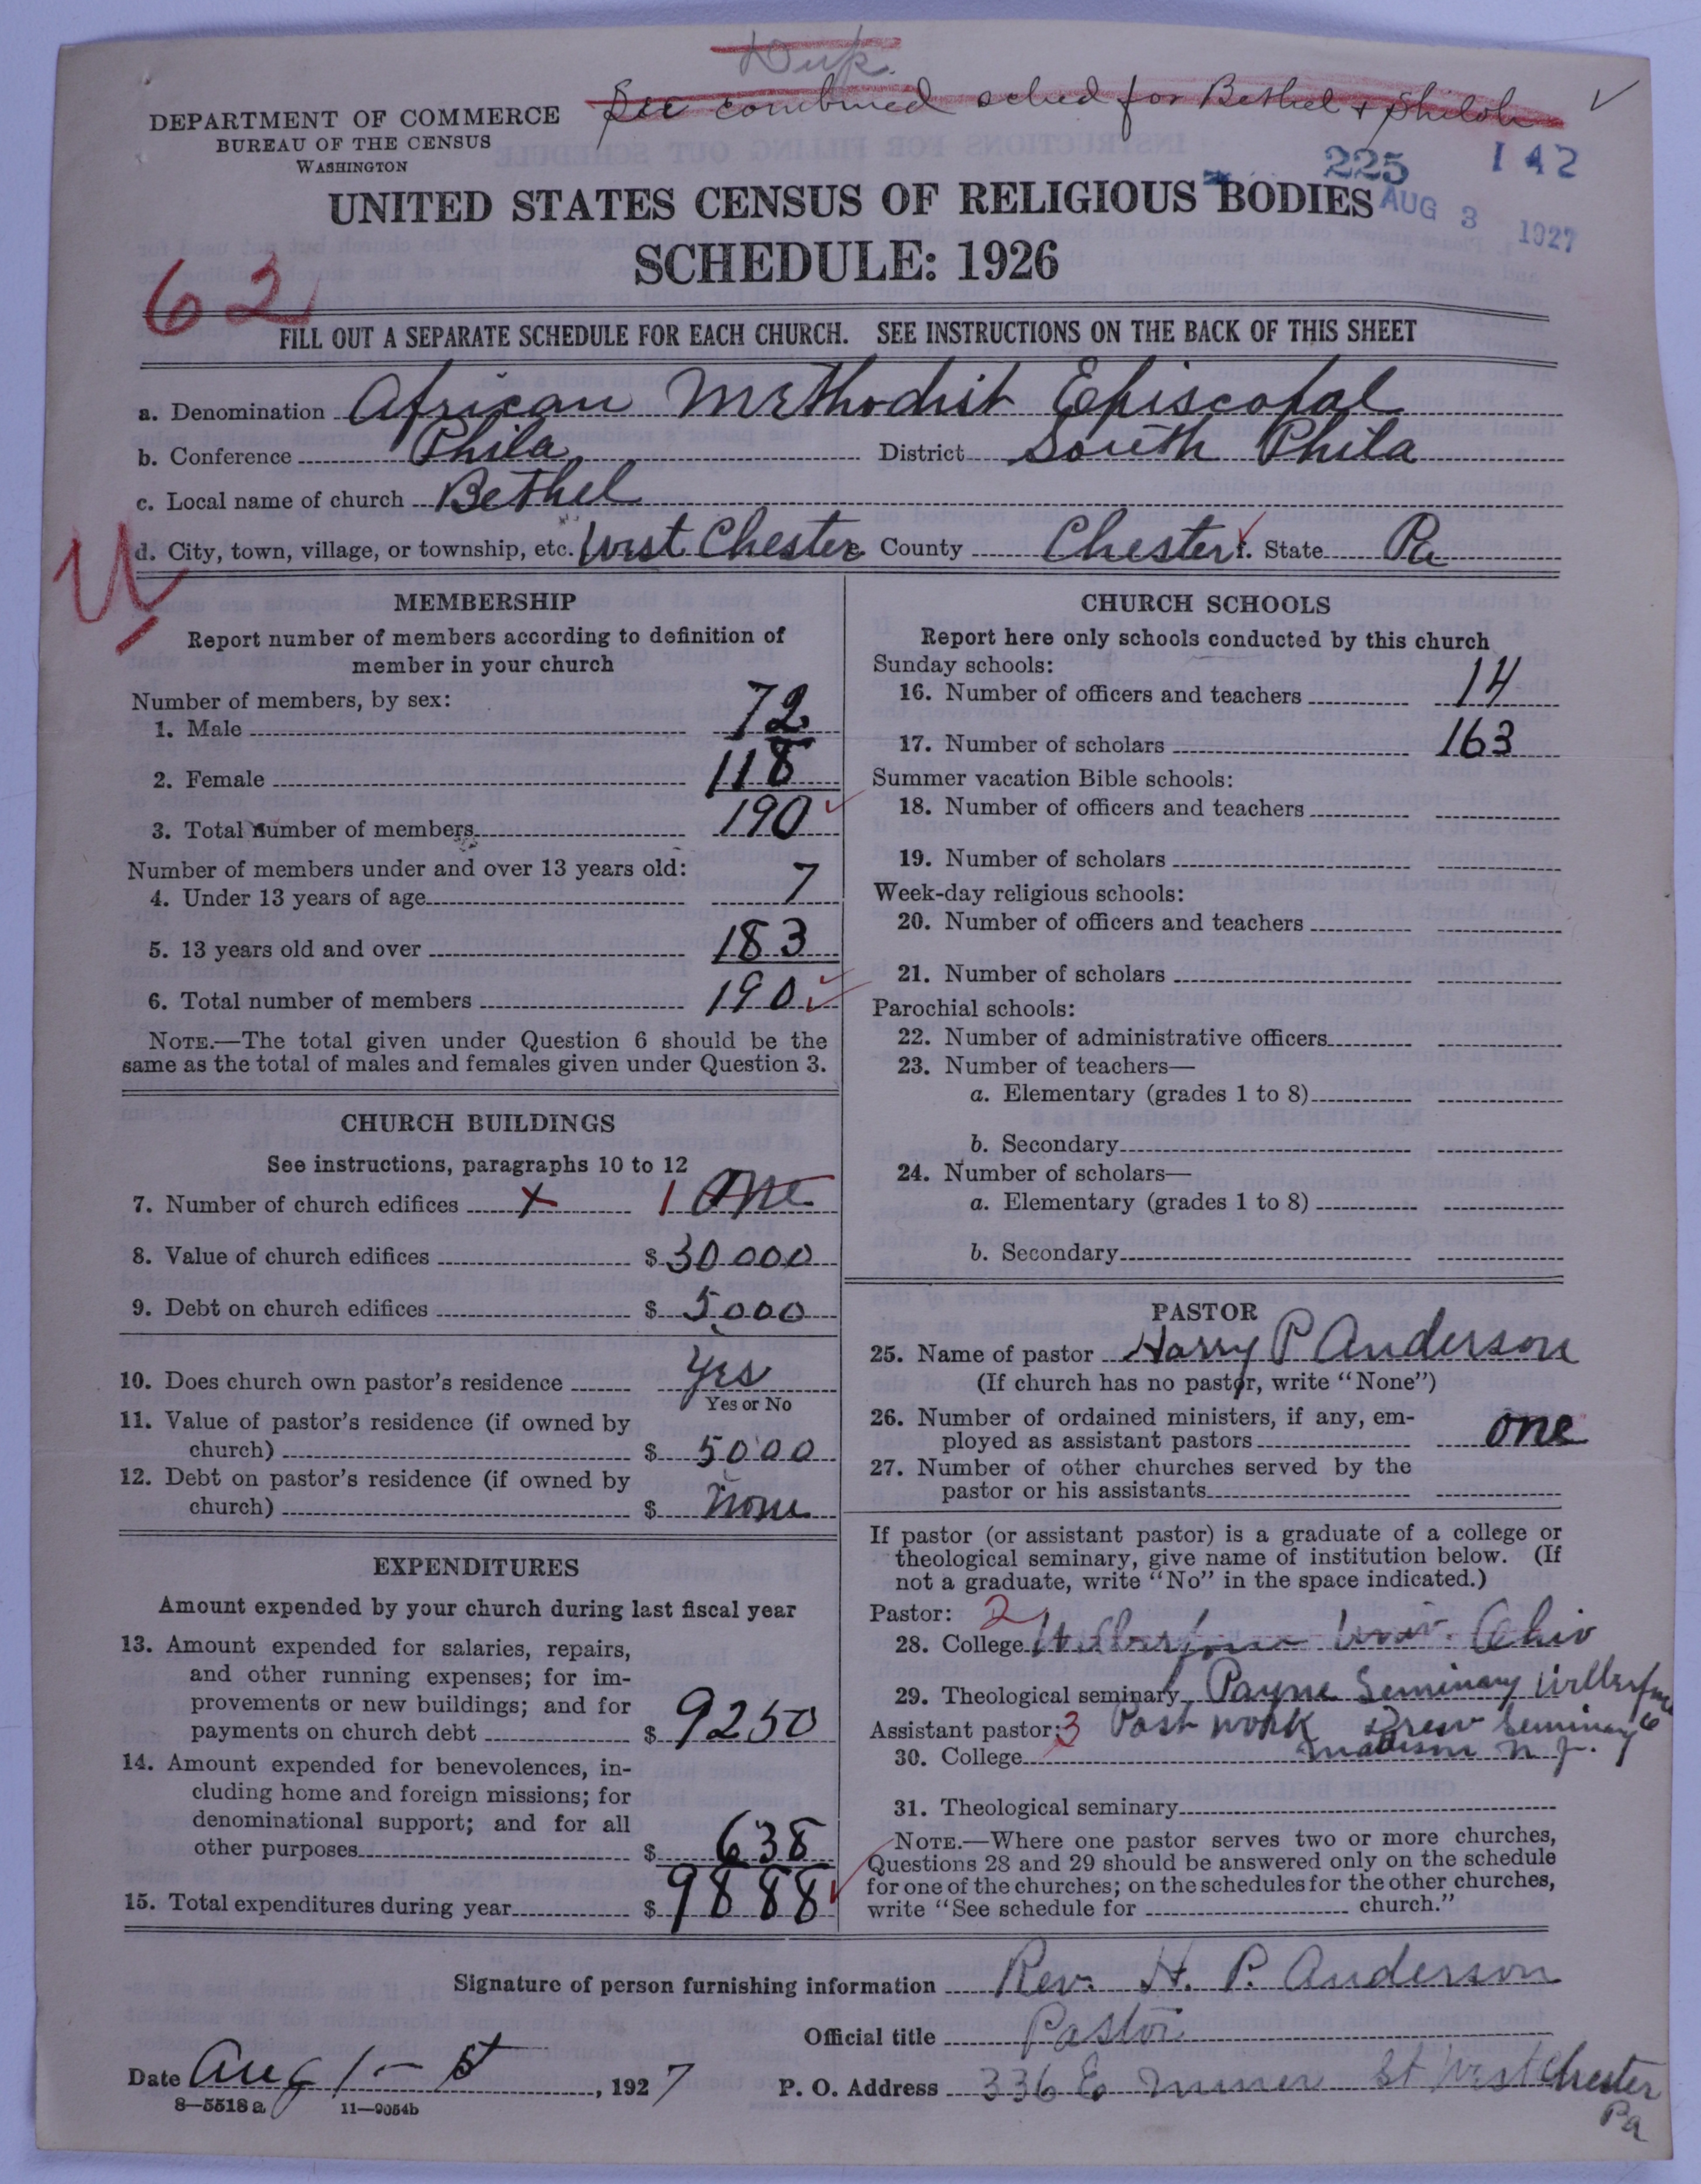 Dup.
See combined sched for Bethel + Shiloh ✓
DEPARTMENT OF COMMERCE
BUREAU OF THE CENSUS
WASHINGTON
225 142
AUG 3 1927
UNITED STATES CENSUS OF RELIGIOUS BODIES
SCHEDULE: 1926
62
FILL OUT A SEPARATE SCHEDULE FOR EACH CHURCH. SEE INSTRUCTIONS ON THE BACK OF THIS SHEET
a. Denomination African Methodist Episcopal
b. Conference Phila District South Phila
c. Local name of church Bethel
U
d. City, town, village, or township, etc. West Chester e. County Chester f. State Pa
MEMBERSHIP
Report number of members according to definition of
member in your church
Number of members, by sex:
1. Male 72
2. Female 118
3. Total number of members 190
Number of members under and over 13 years old:
4. Under 13 years of age 7
5. 13 years old and over 183
6. Total number of members 190
NOTE.—The total given under Question 6 should be the
same as the total of males and females given under Question 3.
CHURCH BUILDINGS
See instructions, paragraphs 10 to 12
7. Number of church edifices x 1 One
8. Value of church edifices $ 30000
9. Debt on church edifices $ 5000
10. Does church own pastor's residence yes
Yes or No
11. Value of pastor's residence (if owned by
church) $ 5000
12. Debt on pastor's residence (if owned by
church) $ none
EXPENDITURES
Amount expended by your church during last fiscal year
13. Amount expended for salaries, repairs,
and other running expenses; for im-
provements or new buildings; and for
payments on church debt $ 9250
14. Amount expended for benevolences, in-
cluding home and foreign missions; for
denominational support; and for all
other purposes $ 638
15. Total expenditures during year $ 9888
CHURCH SCHOOLS
Report here only schools conducted by this church
Sunday schools:
16. Number of officers and teachers 14
17. Number of scholars 163
Summer vacation Bible schools:
18. Number of officers and teachers
19. Number of scholars
Week-day religious schools:
20. Number of officers and teachers
21. Number of scholars
Parochial schools:
22. Number of administrative officers
23. Number of teachers—
a. Elementary (grades 1 to 8)
b. Secondary
24. Number of scholars—
a. Elementary (grades 1 to 8)
b. Secondary
PASTOR
25. Name of pastor Harry P Anderson
(If church has no pastor, write "None")
26. Number of ordained ministers, if any, em-
ployed as assistant pastors one
27. Number of other churches served by the
pastor or his assistants
If pastor (or assistant pastor) is a graduate of a college or
theological seminary, give name of institution below. (If
not a graduate, write "No" in the space indicated.)
Pastor: 2
28. College Wilberforce Univ. Ohio
29. Theological seminary Payne Seminary Wilberforce
Assistant pastor: 3 Post work Drew Seminary
30. College Madison N. J.
31. Theological seminary
NOTE.—Where one pastor serves two or more churches,
Questions 28 and 29 should be answered only on the schedule
for one of the churches; on the schedules for the other churches,
write "See schedule for church."
Signature of person furnishing information Rev. H. P. Anderson
Official title Pastor
Date Aug 1-st, 1927 P. O. Address 336 E Miner St West Chester
Pa
8-5518 a 11—9054b